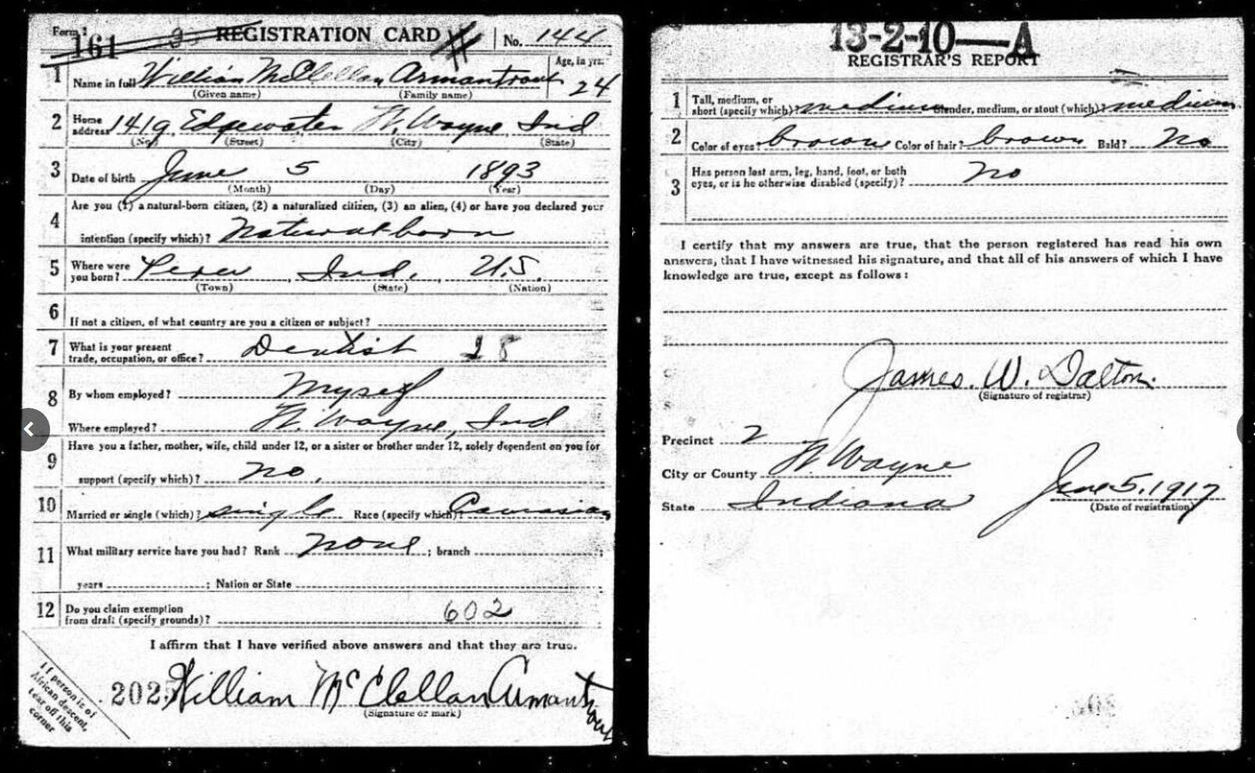 Form 1
161
REGISTRATION CARD No. 144
1 Name in full William McClellan Armantrout Age, in yrs. 24
(Given name) (Family name)
2 Home address 1419 Edgewater Ft. Wayne, Ind
(No.) (Street) (City) (State)
3 Date of birth June 5 1893
(Month) (Day) (Year)
4 Are you (1) a natural-born citizen, (2) a naturalized citizen, (3) an alien, (4) or have you declared your
intention (specify which)? Natural born
5 Where were you born? Peru, Ind. U.S.
(Town) (State) (Nation)
6 If not a citizen, of what country are you a citizen or subject?
7 What is your present trade, occupation, or office? Dentist 28
8 By whom employed? Myself
Where employed? Ft. Wayne, Ind
9 Have you a father, mother, wife, child under 12, or a sister or brother under 12, solely dependent on you for
support (specify which)? no.
10 Married or single (which)? single Race (specify which)? Caucasian
11 What military service have you had? Rank none; branch
years; Nation or State
12 Do you claim exemption from draft (specify grounds)? 602
I affirm that I have verified above answers and that they are true.
2025 William McClellan Armantrout
(Signature or mark)
If person is of
African descent,
tear off this
corner
13-2-10—A
REGISTRAR'S REPORT
1 Tall, medium, or short (specify which)? medium Slender, medium, or stout (which)? medium
2 Color of eyes? brown Color of hair? brown Bald? No
3 Has person lost arm, leg, hand, foot, or both
eyes, or is he otherwise disabled (specify)? no
I certify that my answers are true, that the person registered has read his own
answers, that I have witnessed his signature, and that all of his answers of which I have
knowledge are true, except as follows:
James. W. Dalton.
(Signature of registrar)
Precinct 2
City or County Ft Wayne
State Indiana June 5, 1917
(Date of registration)